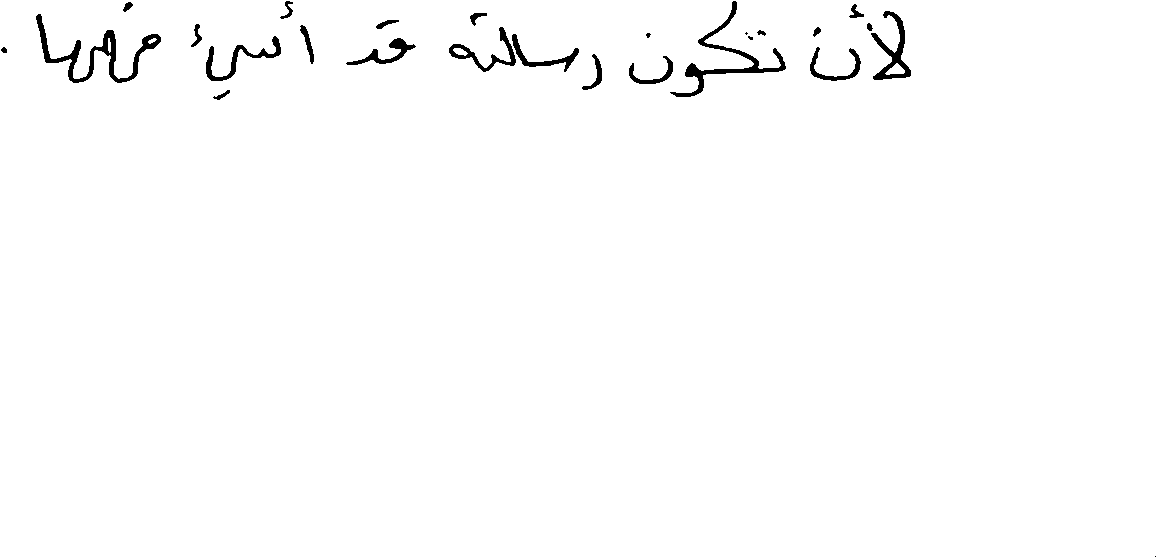 لأن تكون رسالته قد أسيئ فهمها .